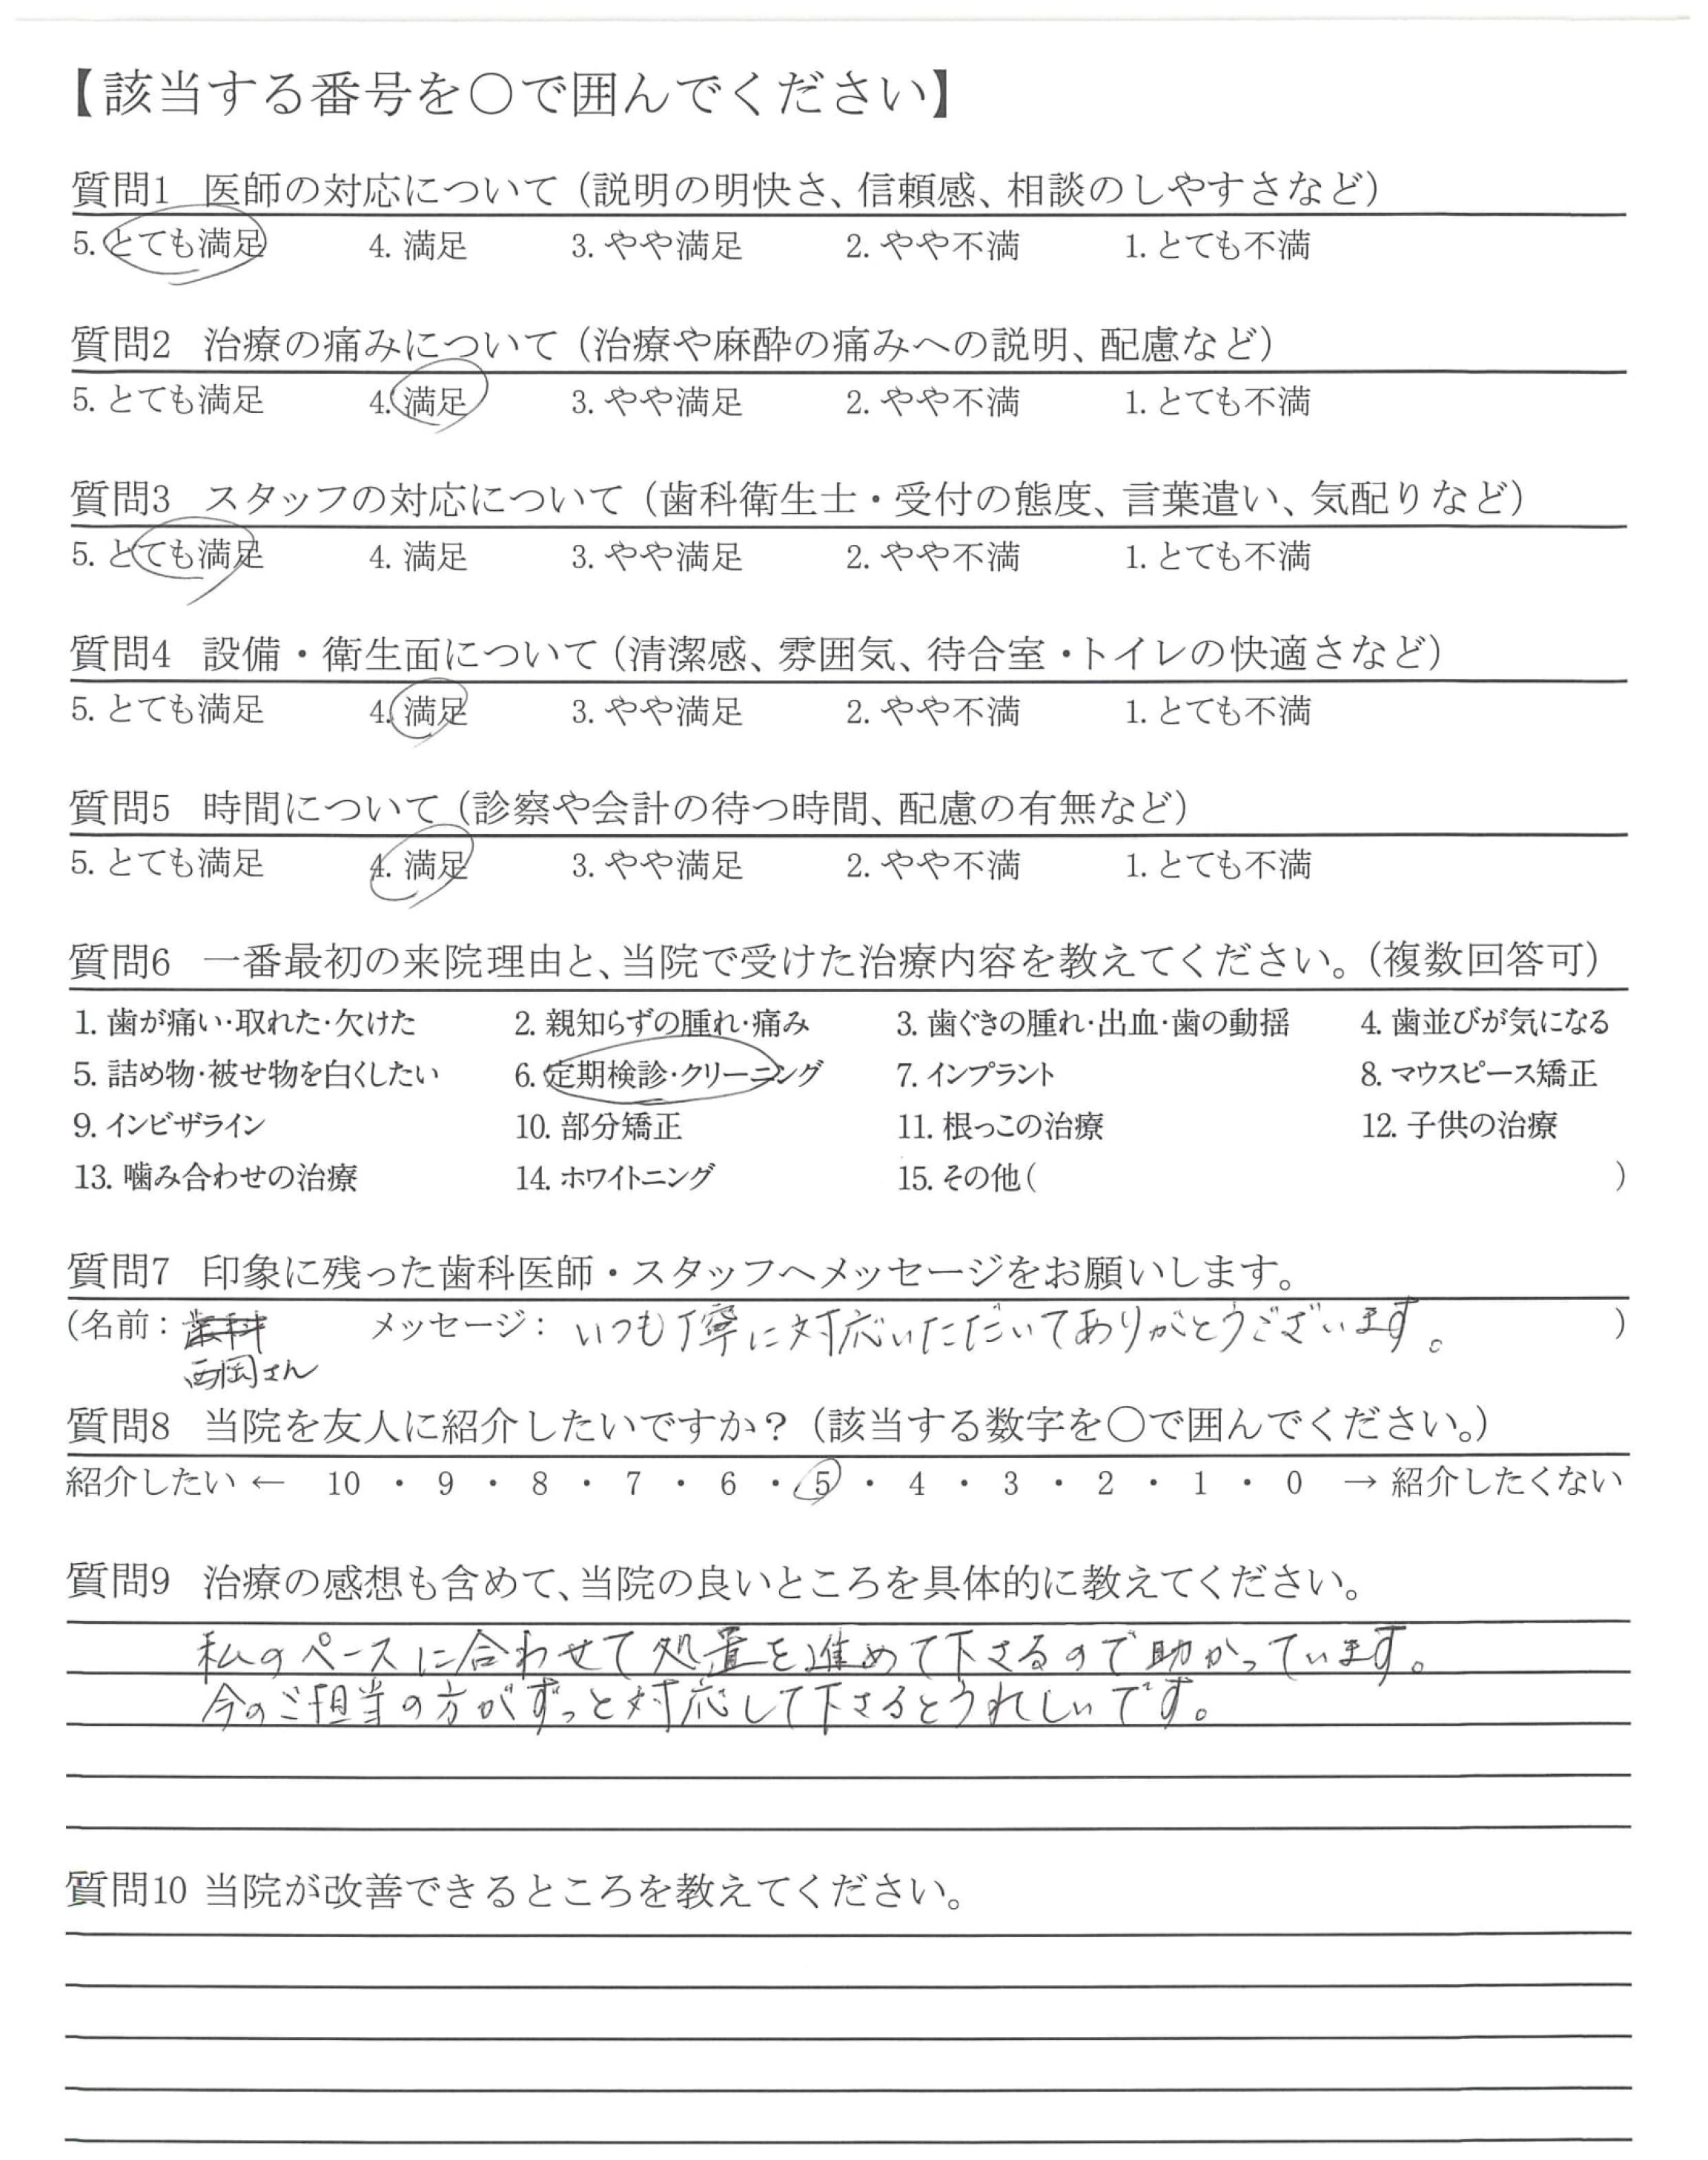 【該当する番号を○で囲んでください】
質問1 医師の対応について（説明の明快さ、信頼感、相談のしやすさなど）
5. とても満足 4. 満足 3. やや満足 2. やや不満 1. とても不満
質問2 治療の痛みについて（治療や麻酔の痛みへの説明、配慮など）
5. とても満足 4. 満足 3. やや満足 2. やや不満 1. とても不満
質問3 スタッフの対応について（歯科衛生士・受付の態度、言葉遣い、気配りなど）
5. とても満足 4. 満足 3. やや満足 2. やや不満 1. とても不満
質問4 設備・衛生面について（清潔感、雰囲気、待合室・トイレの快適さなど）
5. とても満足 4. 満足 3. やや満足 2. やや不満 1. とても不満
質問5 時間について（診察や会計の待つ時間、配慮の有無など）
5. とても満足 4. 満足 3. やや満足 2. やや不満 1. とても不満
質問6 一番最初の来院理由と、当院で受けた治療内容を教えてください。（複数回答可）
1. 歯が痛い・取れた・欠けた 2. 親知らずの腫れ・痛み 3. 歯ぐきの腫れ・出血・歯の動揺 4. 歯並びが気になる
5. 詰め物・被せ物を白くしたい 6. 定期検診・クリーニング 7. インプラント 8. マウスピース矯正
9. インビザライン 10. 部分矯正 11. 根っこの治療 12. 子供の治療
13. 噛み合わせの治療 14. ホワイトニング 15. その他（ ）
質問7 印象に残った歯科医師・スタッフへメッセージをお願いします。
（名前： 歯科 メッセージ： いつも丁寧に対応いただいてありがとうございます。 ）
西岡さん
質問8 当院を友人に紹介したいですか？（該当する数字を○で囲んでください。）
紹介したい ← 10 ・ 9 ・ 8 ・ 7 ・ 6 ・ 5 ・ 4 ・ 3 ・ 2 ・ 1 ・ 0 → 紹介したくない
質問9 治療の感想も含めて、当院の良いところを具体的に教えてください。
私のペースに合わせて処置を進めて下さるので助かっています。
今のご担当の方がずっと対応して下さるとうれしいです。
質問10 当院が改善できるところを教えてください。